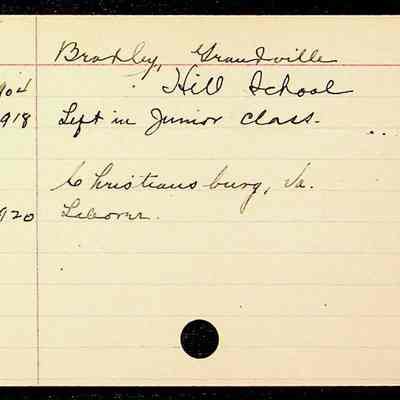 Bradley, Grandville
904 Hill School
918 Left in Junior Class.
Christiansburg, Va.
920 Laborer.